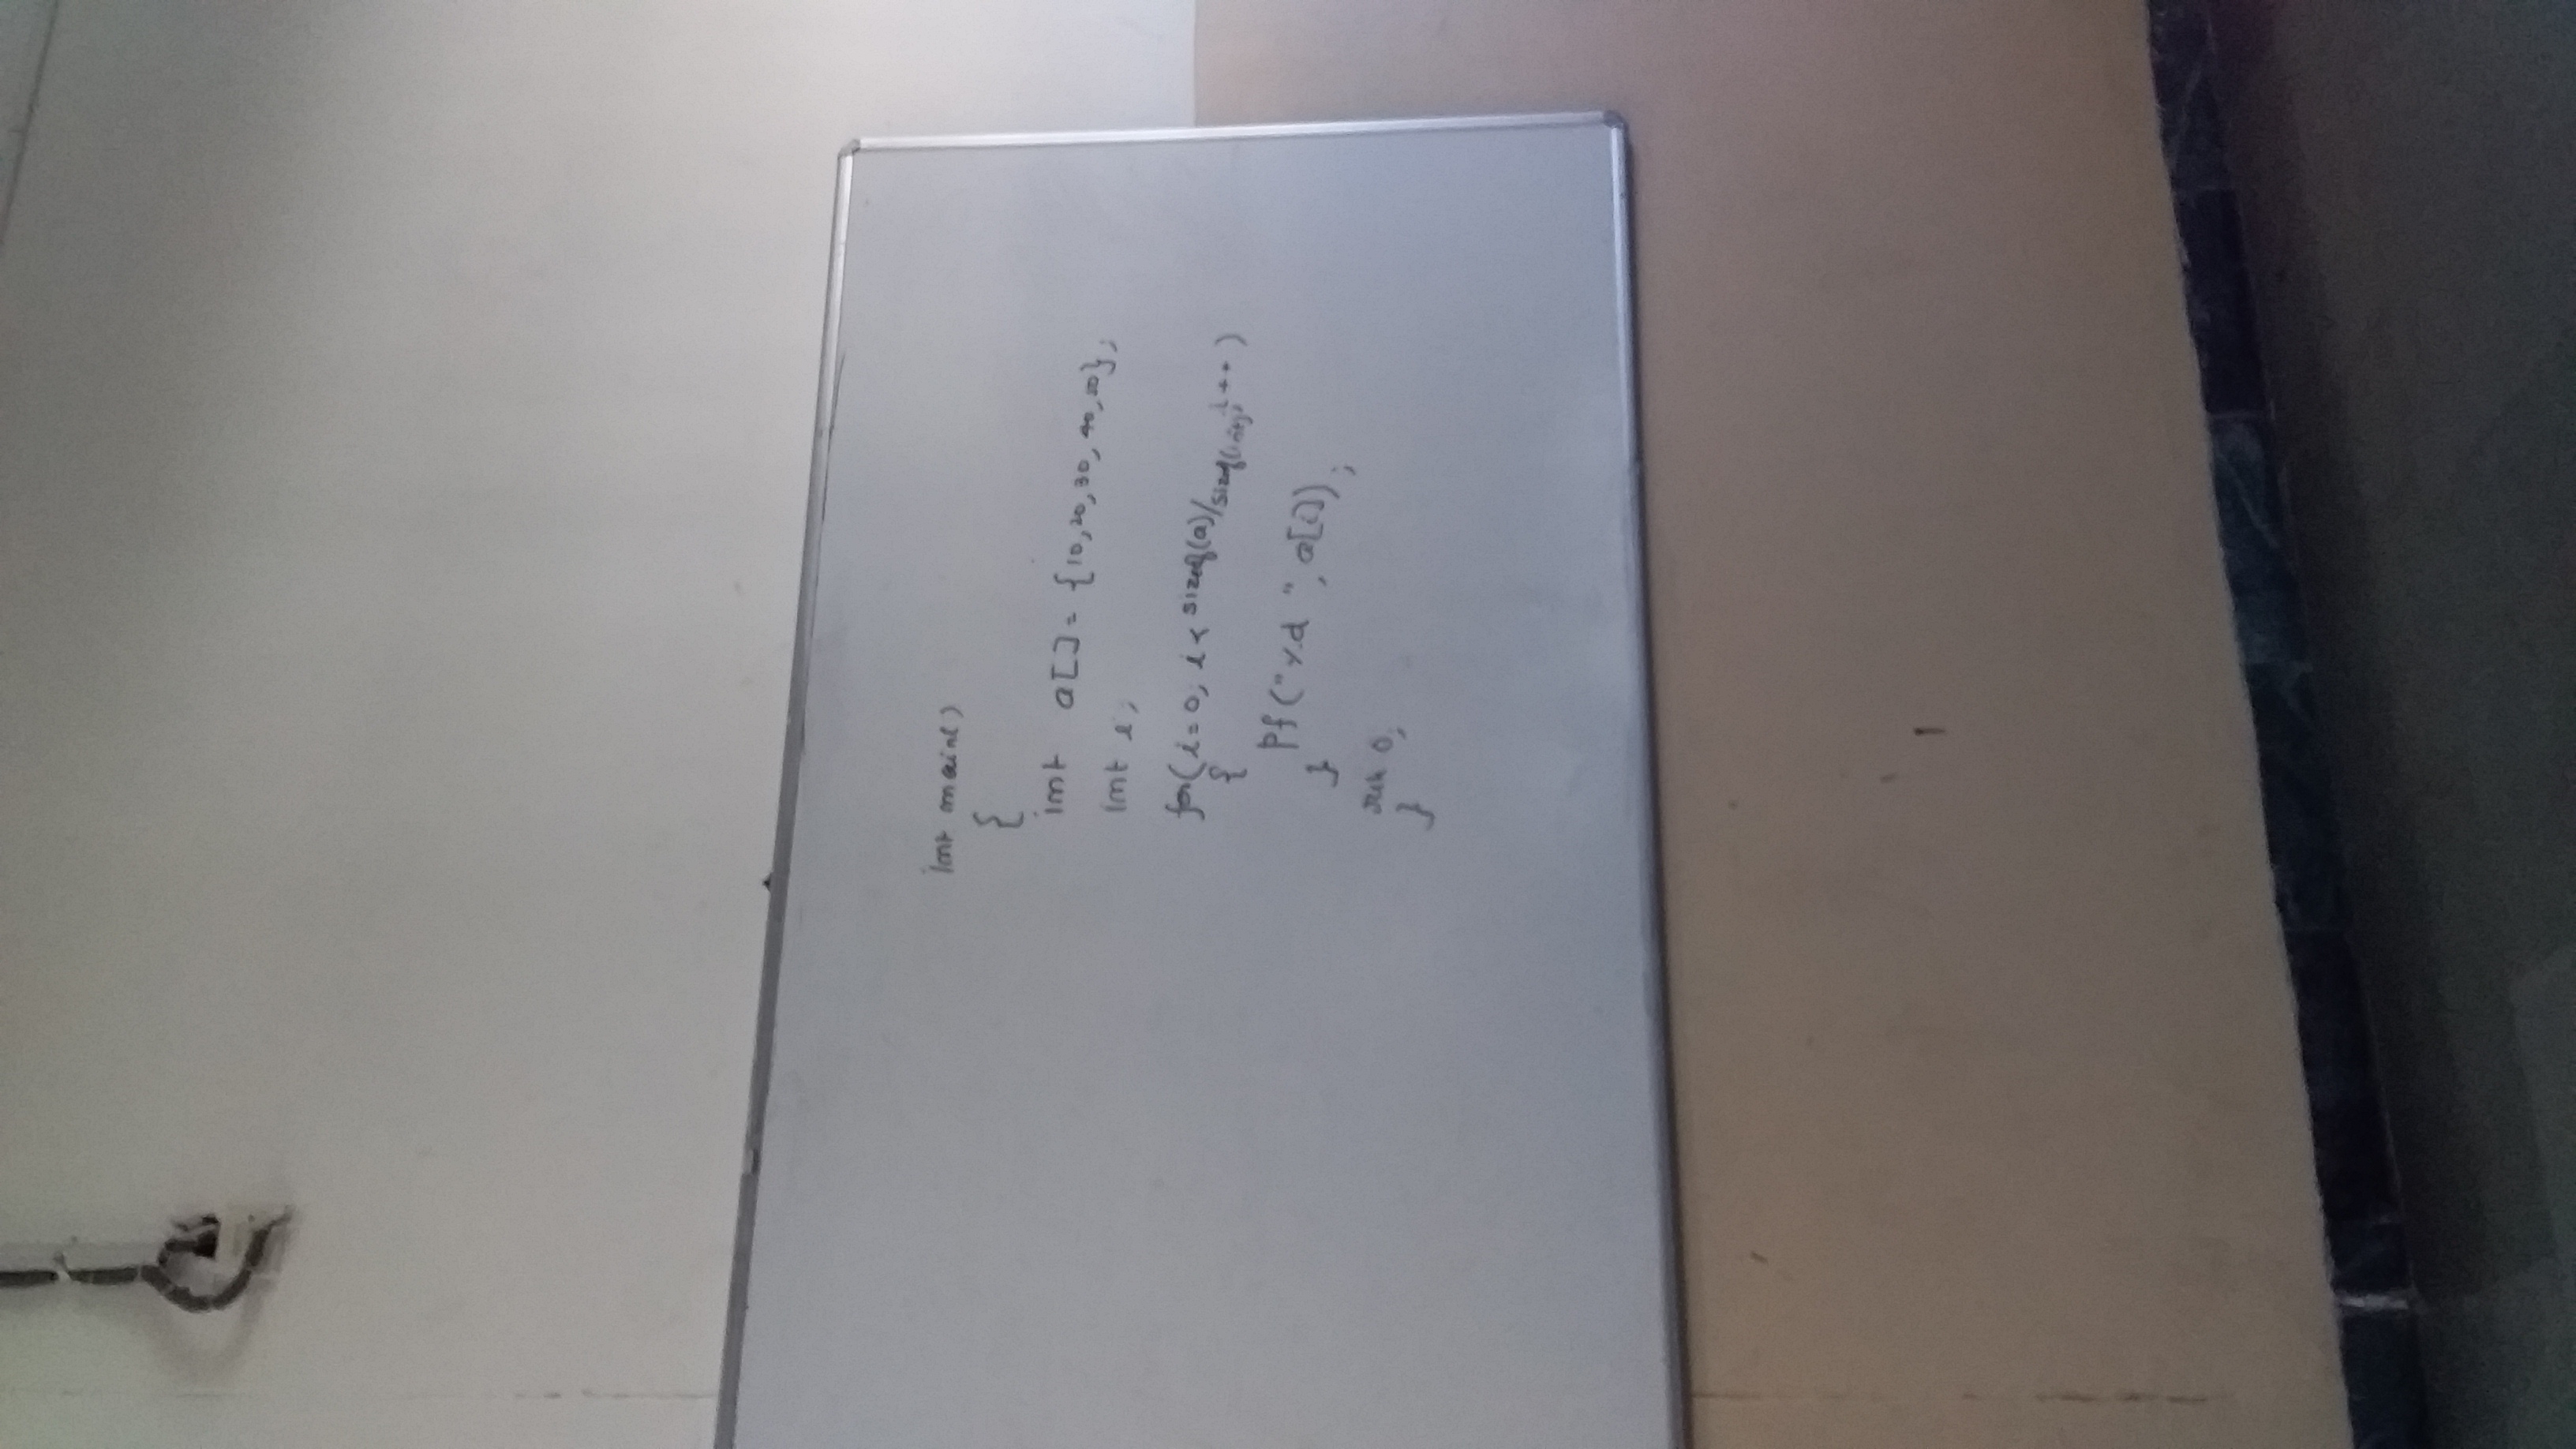 int main()
{
int a[] = {10,20,30,40,50};
int i;
for(i=0; i< sizeof(a)/sizeof(int);i++)
{
Pf("%d ", a[i]);
}
ret 0;
}